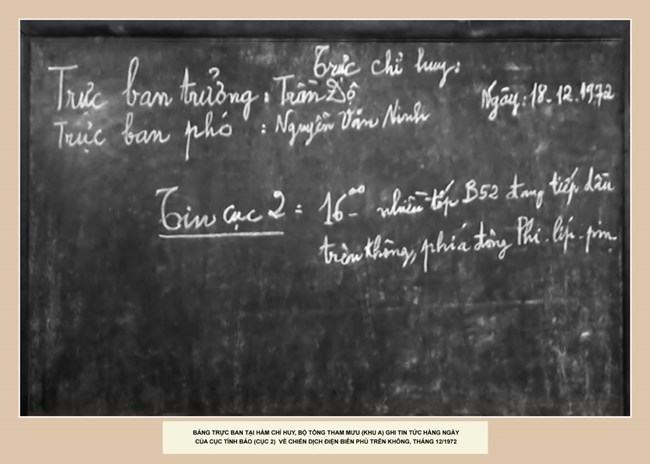 Trực chỉ huy:
Trực ban trưởng: Trần Độ
Ngày: 18.12.1972
Trực ban phó : Nguyễn Văn Ninh
Tin cục 2 = 16ºº nhiều tốp B52 đang tiếp dầu
trên không, phía đông Phi-líp-pin.
BẢNG TRỰC BAN TẠI HẦM CHỈ HUY, BỘ TỔNG THAM MƯU (KHU A) GHI TIN TỨC HÀNG NGÀY
CỦA CỤC TÌNH BÁO (CỤC 2) VỀ CHIẾN DỊCH ĐIỆN BIÊN PHỦ TRÊN KHÔNG, THÁNG 12/1972